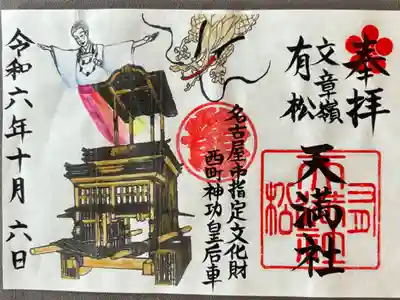 奉拝
文章嶺
有松
天満社
名古屋市指定文化財
西町神功皇后車
令和六年十月六日